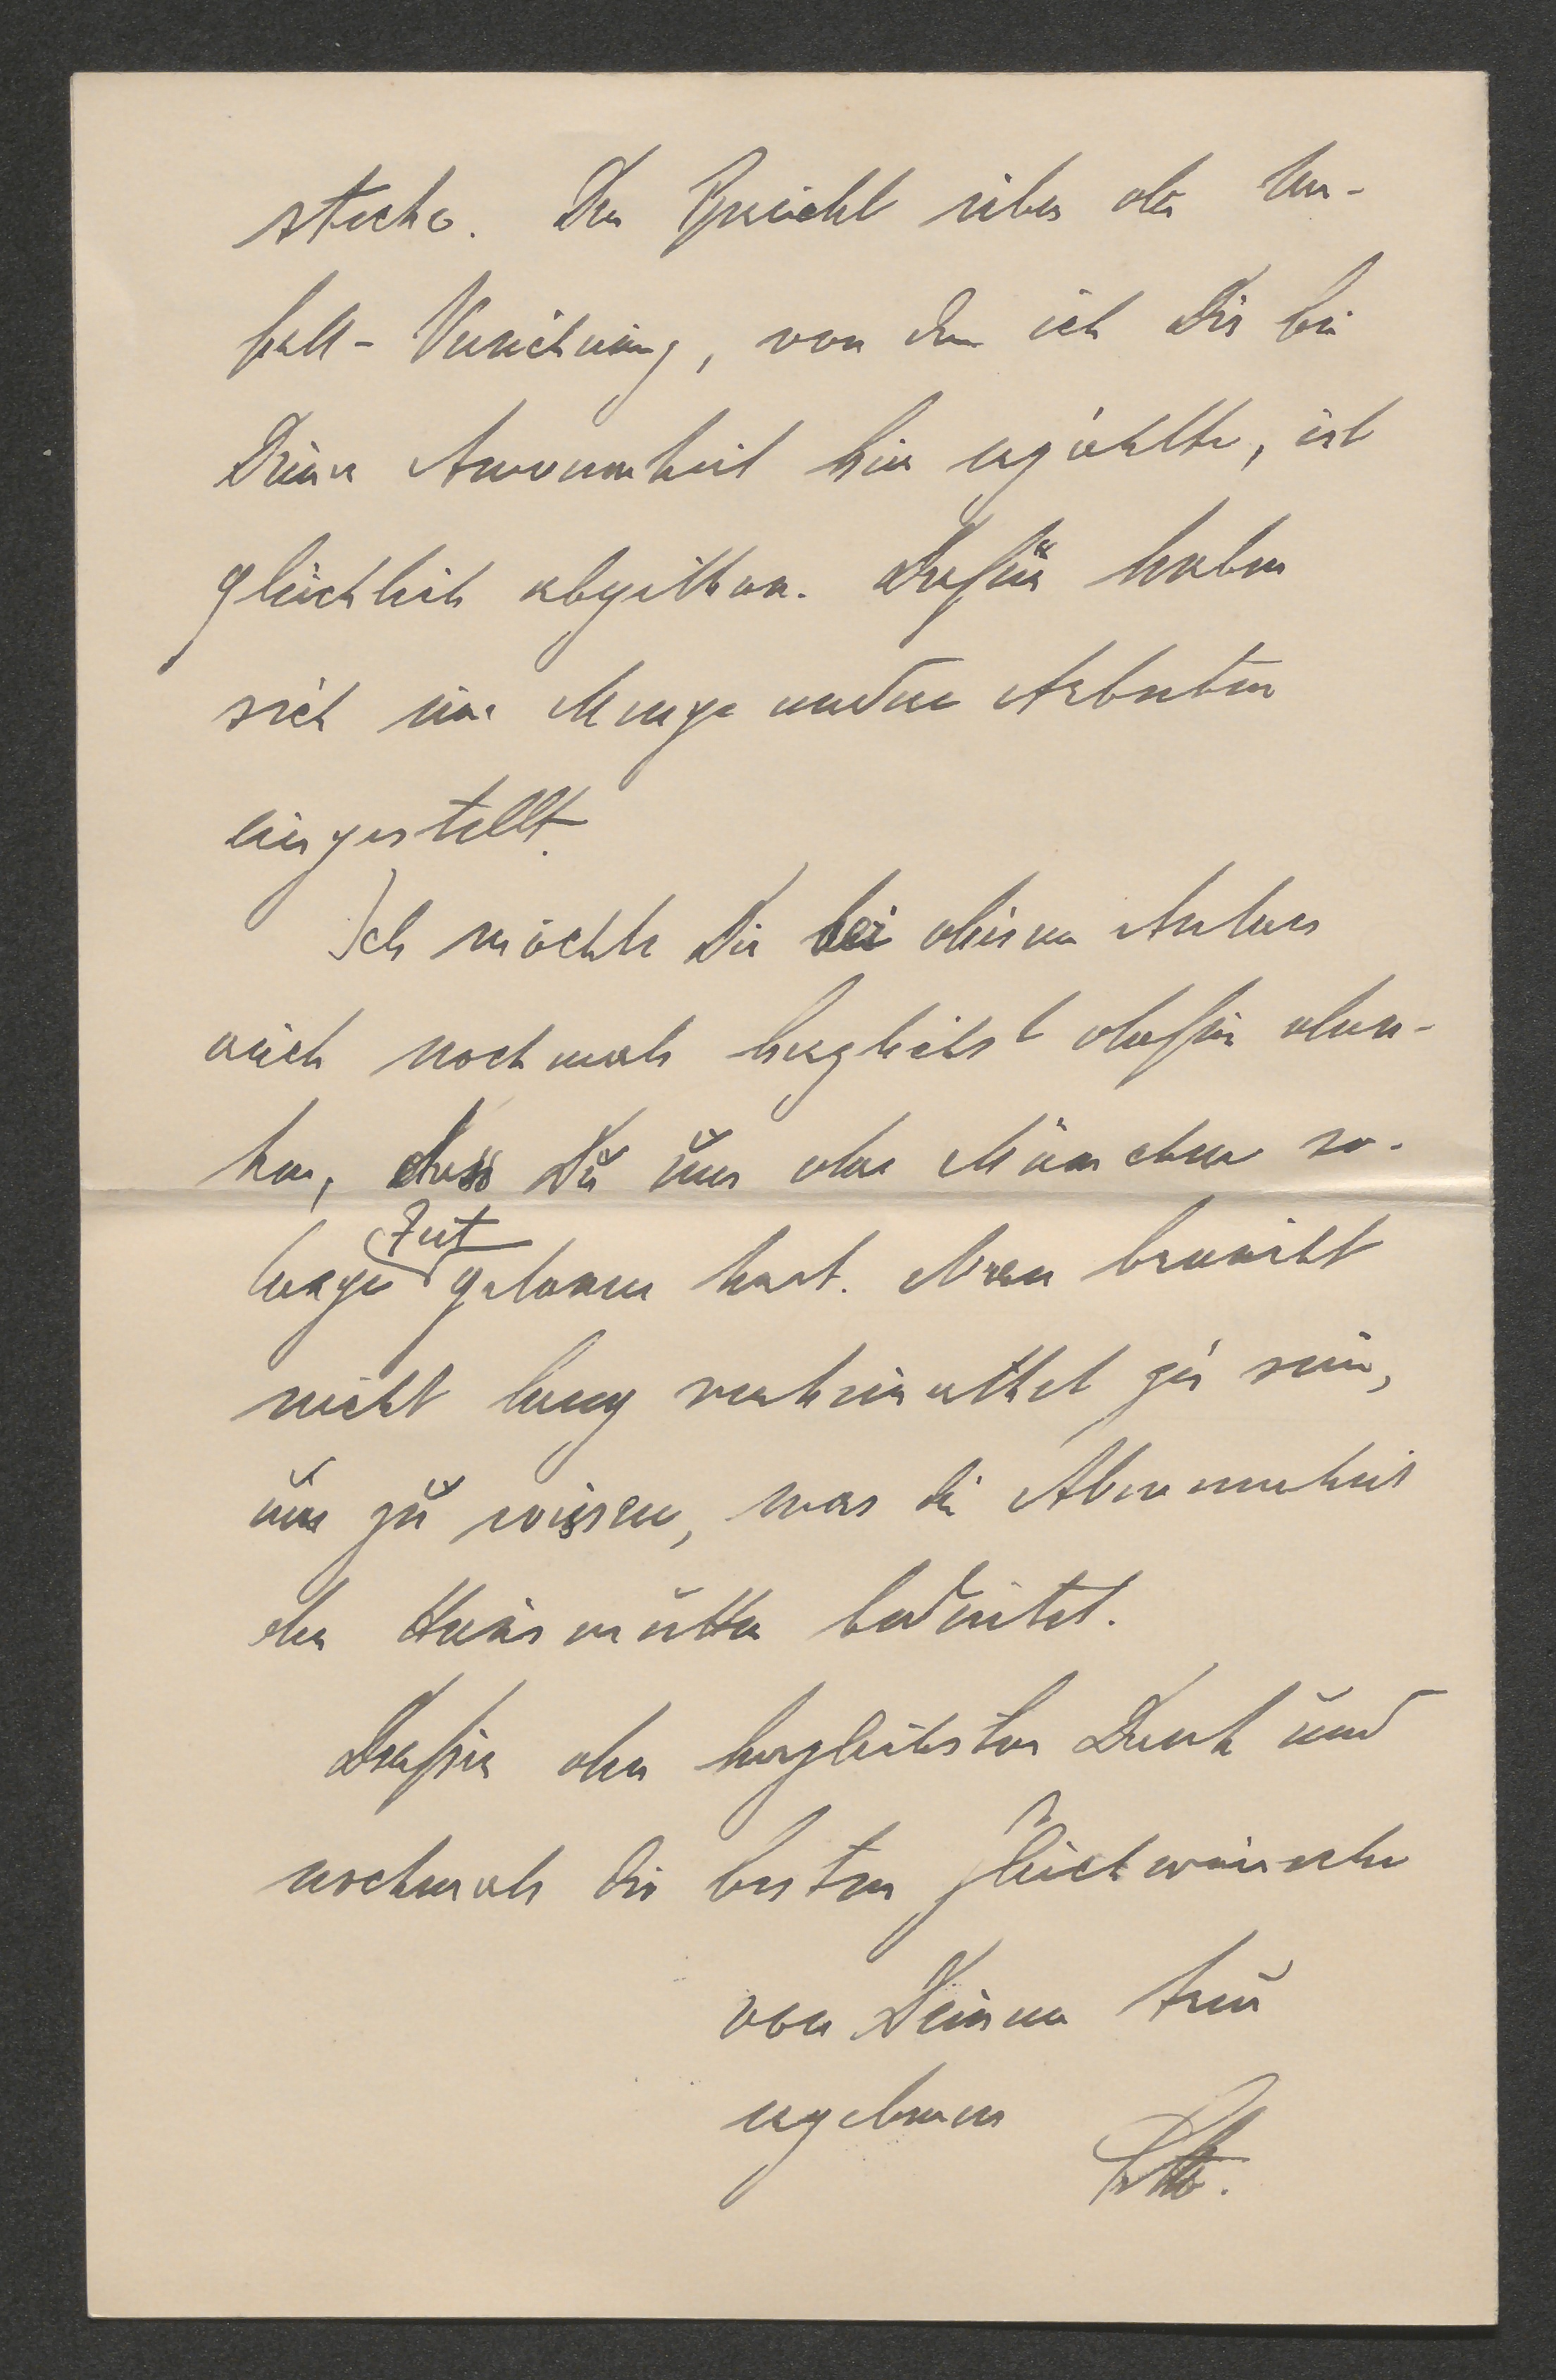 stecke. Der Bericht über die Un-
fall-Versicherung, von dem ich Dir bei
Deiner Anwesenheit hier erzählte, ist
glücklich abgethan. Dafür haben
sich eine Menge andere Arbeiten
eingestellt.
Ich möchte Dir bei diesem Anlass
auch nochmals herzlichst dafür dan-
ken, dass Du uns das Mämchen so-
lange Zeit gelassen hast. Man braucht
nicht lang verheirathet zu sein,
um zu wissen, was die Abwesenheit
der Hausmutter bedeutet.
Dafür den herzlichsten Dank und
nochmals die besten Glückwünsche
von Deinem treu
ergebenen
Otto.